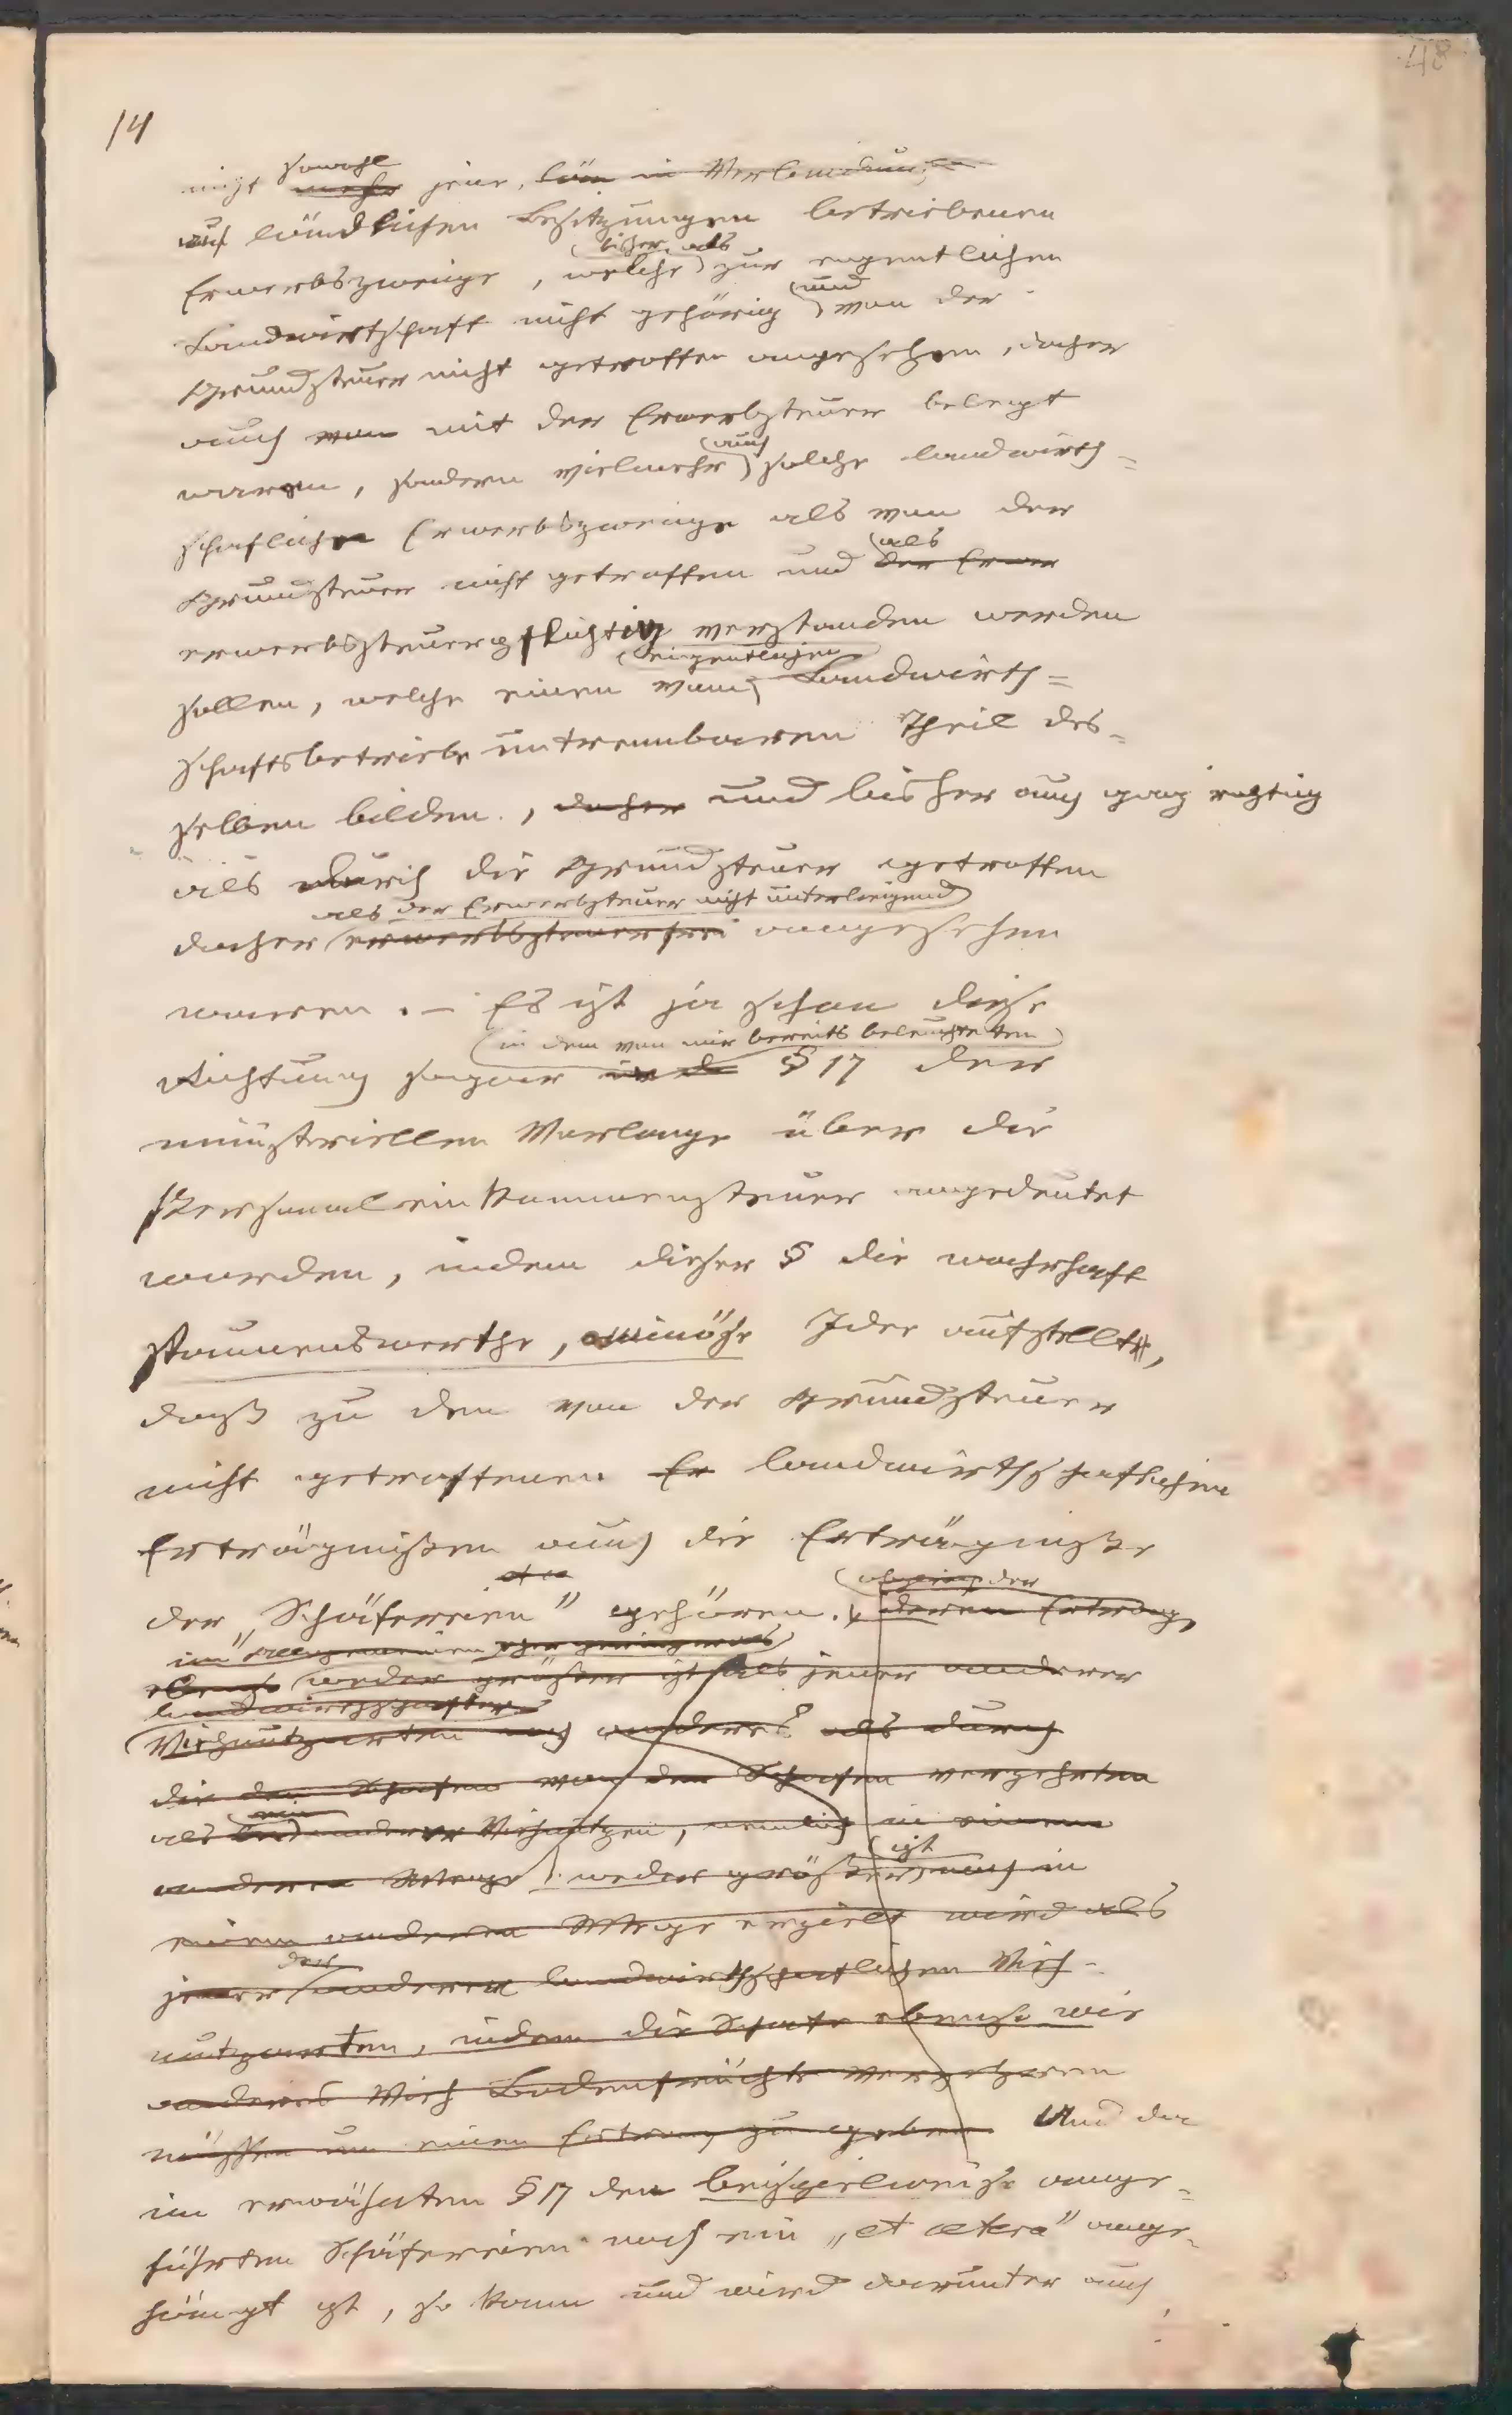 48
14
sowohl
nicht mehr jene, bloß in Verbindung
auf ländlichen Besitzungen betriebenen
bisher als
Erwerbszweige, welche zur eigentlichen
und
Landwirthschaft nicht gehörig von der
Grundsteuer nicht getroffen angesehen, daher
auch von mit der Erwerbsteuer belegt
auch
waren, sondern vielmehr solche landwirth=
schafliche Erwerbszweige als von der
als
Grundsteuer nicht getroffen und der Erwer
erwerbsteuerpflichtig verstanden werden
eigentlichen
sollen, welche einen vom Landwirth=
schaftsbetriebe untrennbaren Theil des=
selben bilden, daher und bisher auch ganz richtig
als durch die Grundsteuer getroffen
als der Erwerbsteuer nicht unterliegend
daher erwerbsteuerfrei angesehen
waren. – Es ist ja schon diese
in dem von mir bereits beleuchteten
Richtung sogar in d § 17 der
ministeriellen Vorlage über die
Personaleinkommensteuer angedeutet
worden, indem dieser § die wahrhaft
staunenswerthe, ominöse Idee aufstellte,
daß zu den von der Grundsteuer
nicht getroffenen Er landwirthschaftlichen
Erträgnißen auch die Erträgnisse
etc
der "Schäfereien" gehören. deren Ertrag,
im Allgemeinen eher geringer als
ebenso weder größer ist als jener anderer
landwirthschafter
Viehnutzarten noch anders als durch
die den Schafen von den Schafen verzehrten
als bei anderer Viehnutzen, nemlich in einem
ist
anderen Wege weder größer noch in
einem anderen Wege erzielt wird als
der
jener anderen landwirthschaftlichen Vieh=
nutzarten, indem die Schafe ebenso wie
anderes Vieh Bodenfrüchte verzehren
müssen um einen Ertrag zu geben Und da
im erwähnten § 17 den beispielweise ange=
führten Schäfereien noch ein „et cetera" ange=
hängt ist, so kann und wird darunter auch